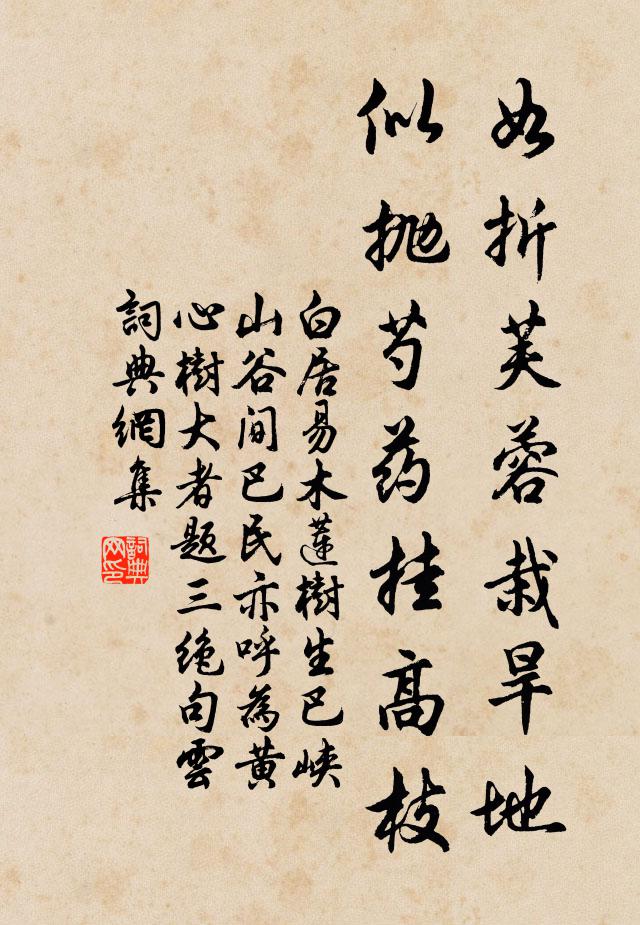 如折芙蓉栽旱地
似抛芍药挂高枝
白居易木蓮樹生巴峡
山谷间巴民亦呼為黄
心樹大者题三绝句雲
詞典網集
詞典
网印